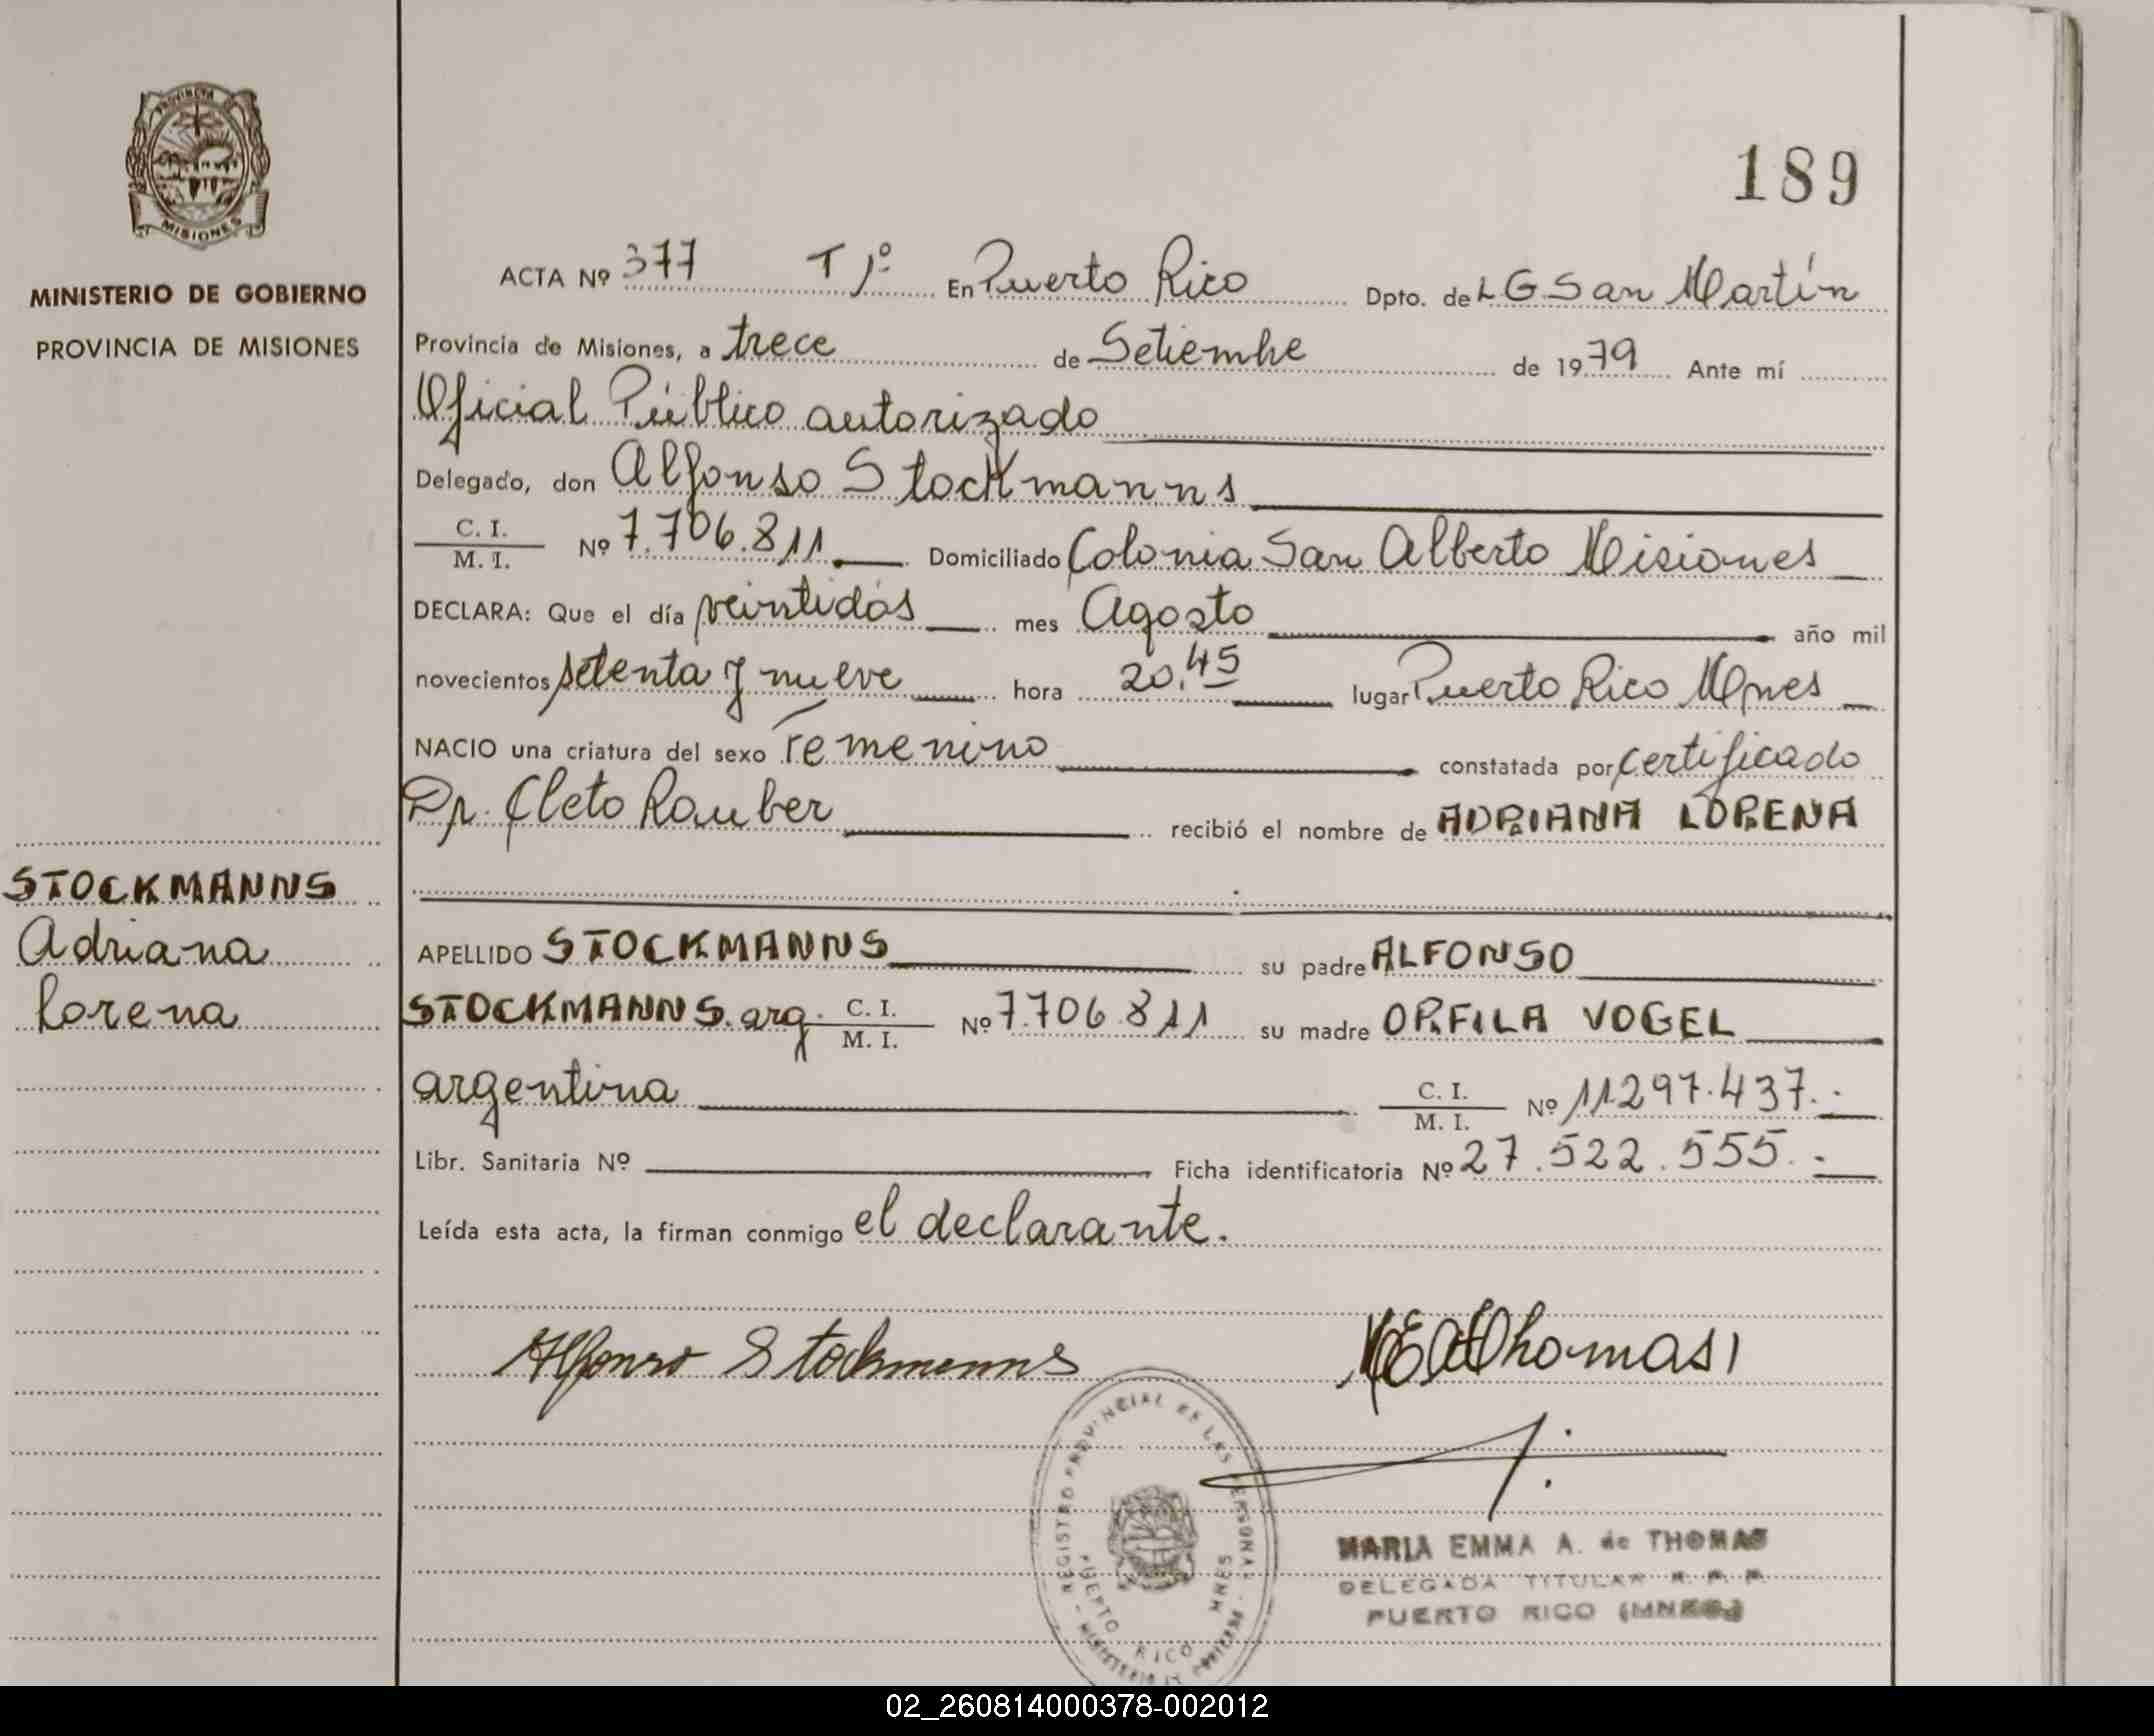 PROVINCIA DE
MISIONES
MINISTERIO DE GOBIERNO
PROVINCIA DE MISIONES
STOCKMANNS
Adriana
Lorena
189
ACTA Nº 377 T 1º En Puerto Rico Dpto. de L G San Martín
Provincia de Misiones, a trece de Setiembre de 1979 Ante mí
Oficial Público autorizado
Delegado, don Alfonso Stockmanns
C. I.
M. I. Nº 7.706.811 Domiciliado Colonia San Alberto Misiones
DECLARA: Que el día veintidós mes Agosto año mil
novecientos setenta y nueve hora 20.45 lugar Puerto Rico Mnes
NACIO una criatura del sexo Femenino constatada por certificado
Dr. Cleto Rauber recibió el nombre de ADRIANA LORENA
APELLIDO STOCKMANNS su padre ALFONSO
STOCKMANNS. arg. C. I.
M. I. Nº 7.706.811 su madre ORFILA VOGEL
argentina C. I.
M. I. Nº 11.297.437.-
Libr. Sanitaria Nº Ficha identificatoria Nº 27.522.555.-
Leída esta acta, la firman conmigo el declarante.
Alfonso Stockmanns
MEAdeThomas
REGISTRO PROVINCIAL DE LAS PERSONAS
PUERTO RICO MNES
MARIA EMMA A. de THOMAS
DELEGADA TITULAR R. P. P.
PUERTO RICO (MNES)
02_260814000378-002012